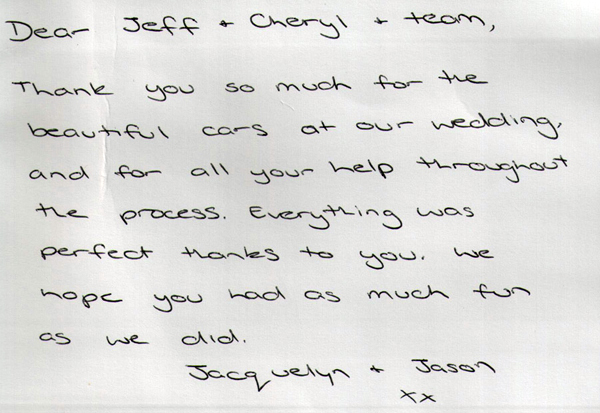 Dear Jeff + Cheryl + team,
Thank you so much for the
beautiful cars at our wedding,
and for all your help throughout
the process. Everything was
perfect thanks to you. We
hope you had as much fun
as we did.
Jacquelyn + Jason
xx